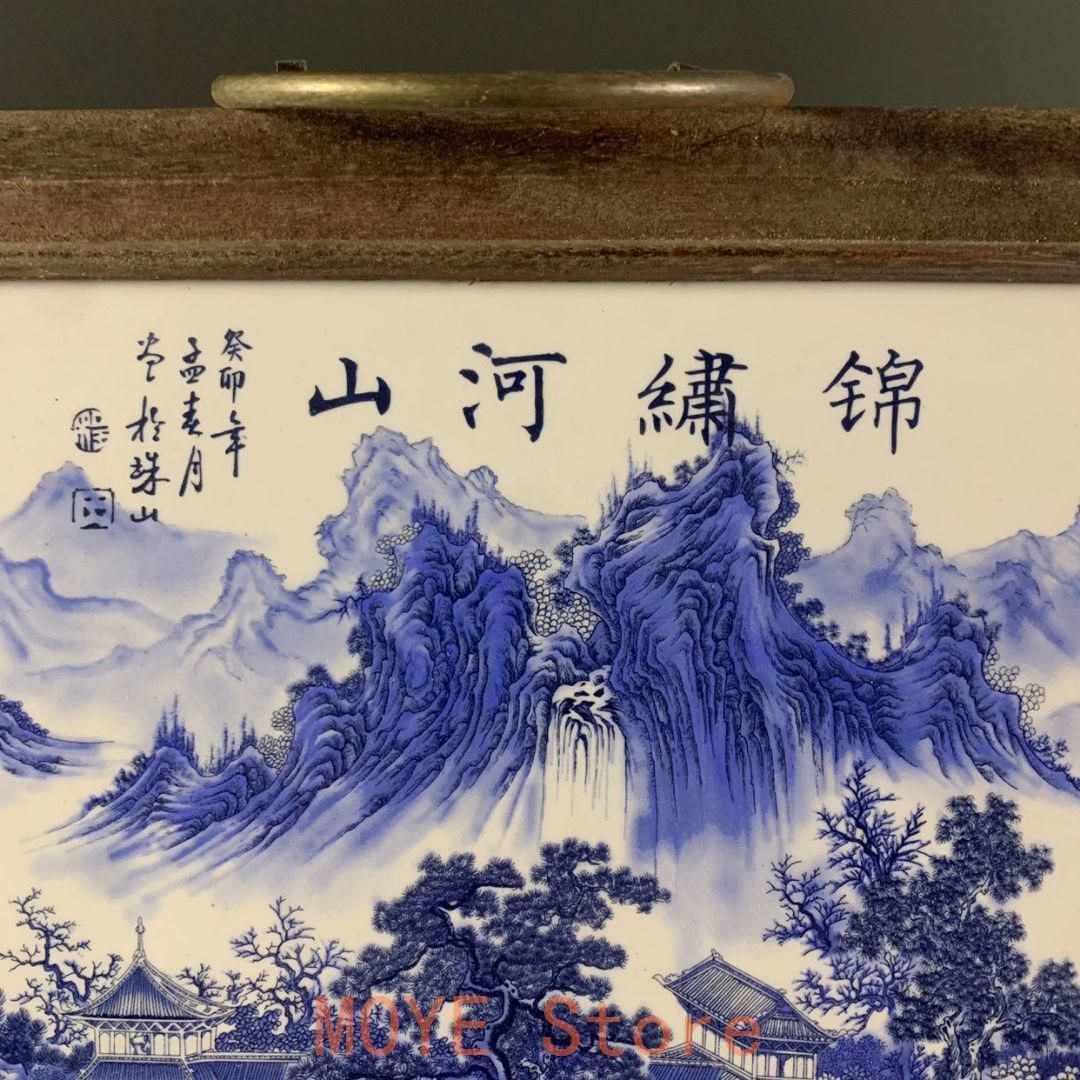 锦繡河山
癸卯年
孟春月
於珠山
MOYE Store